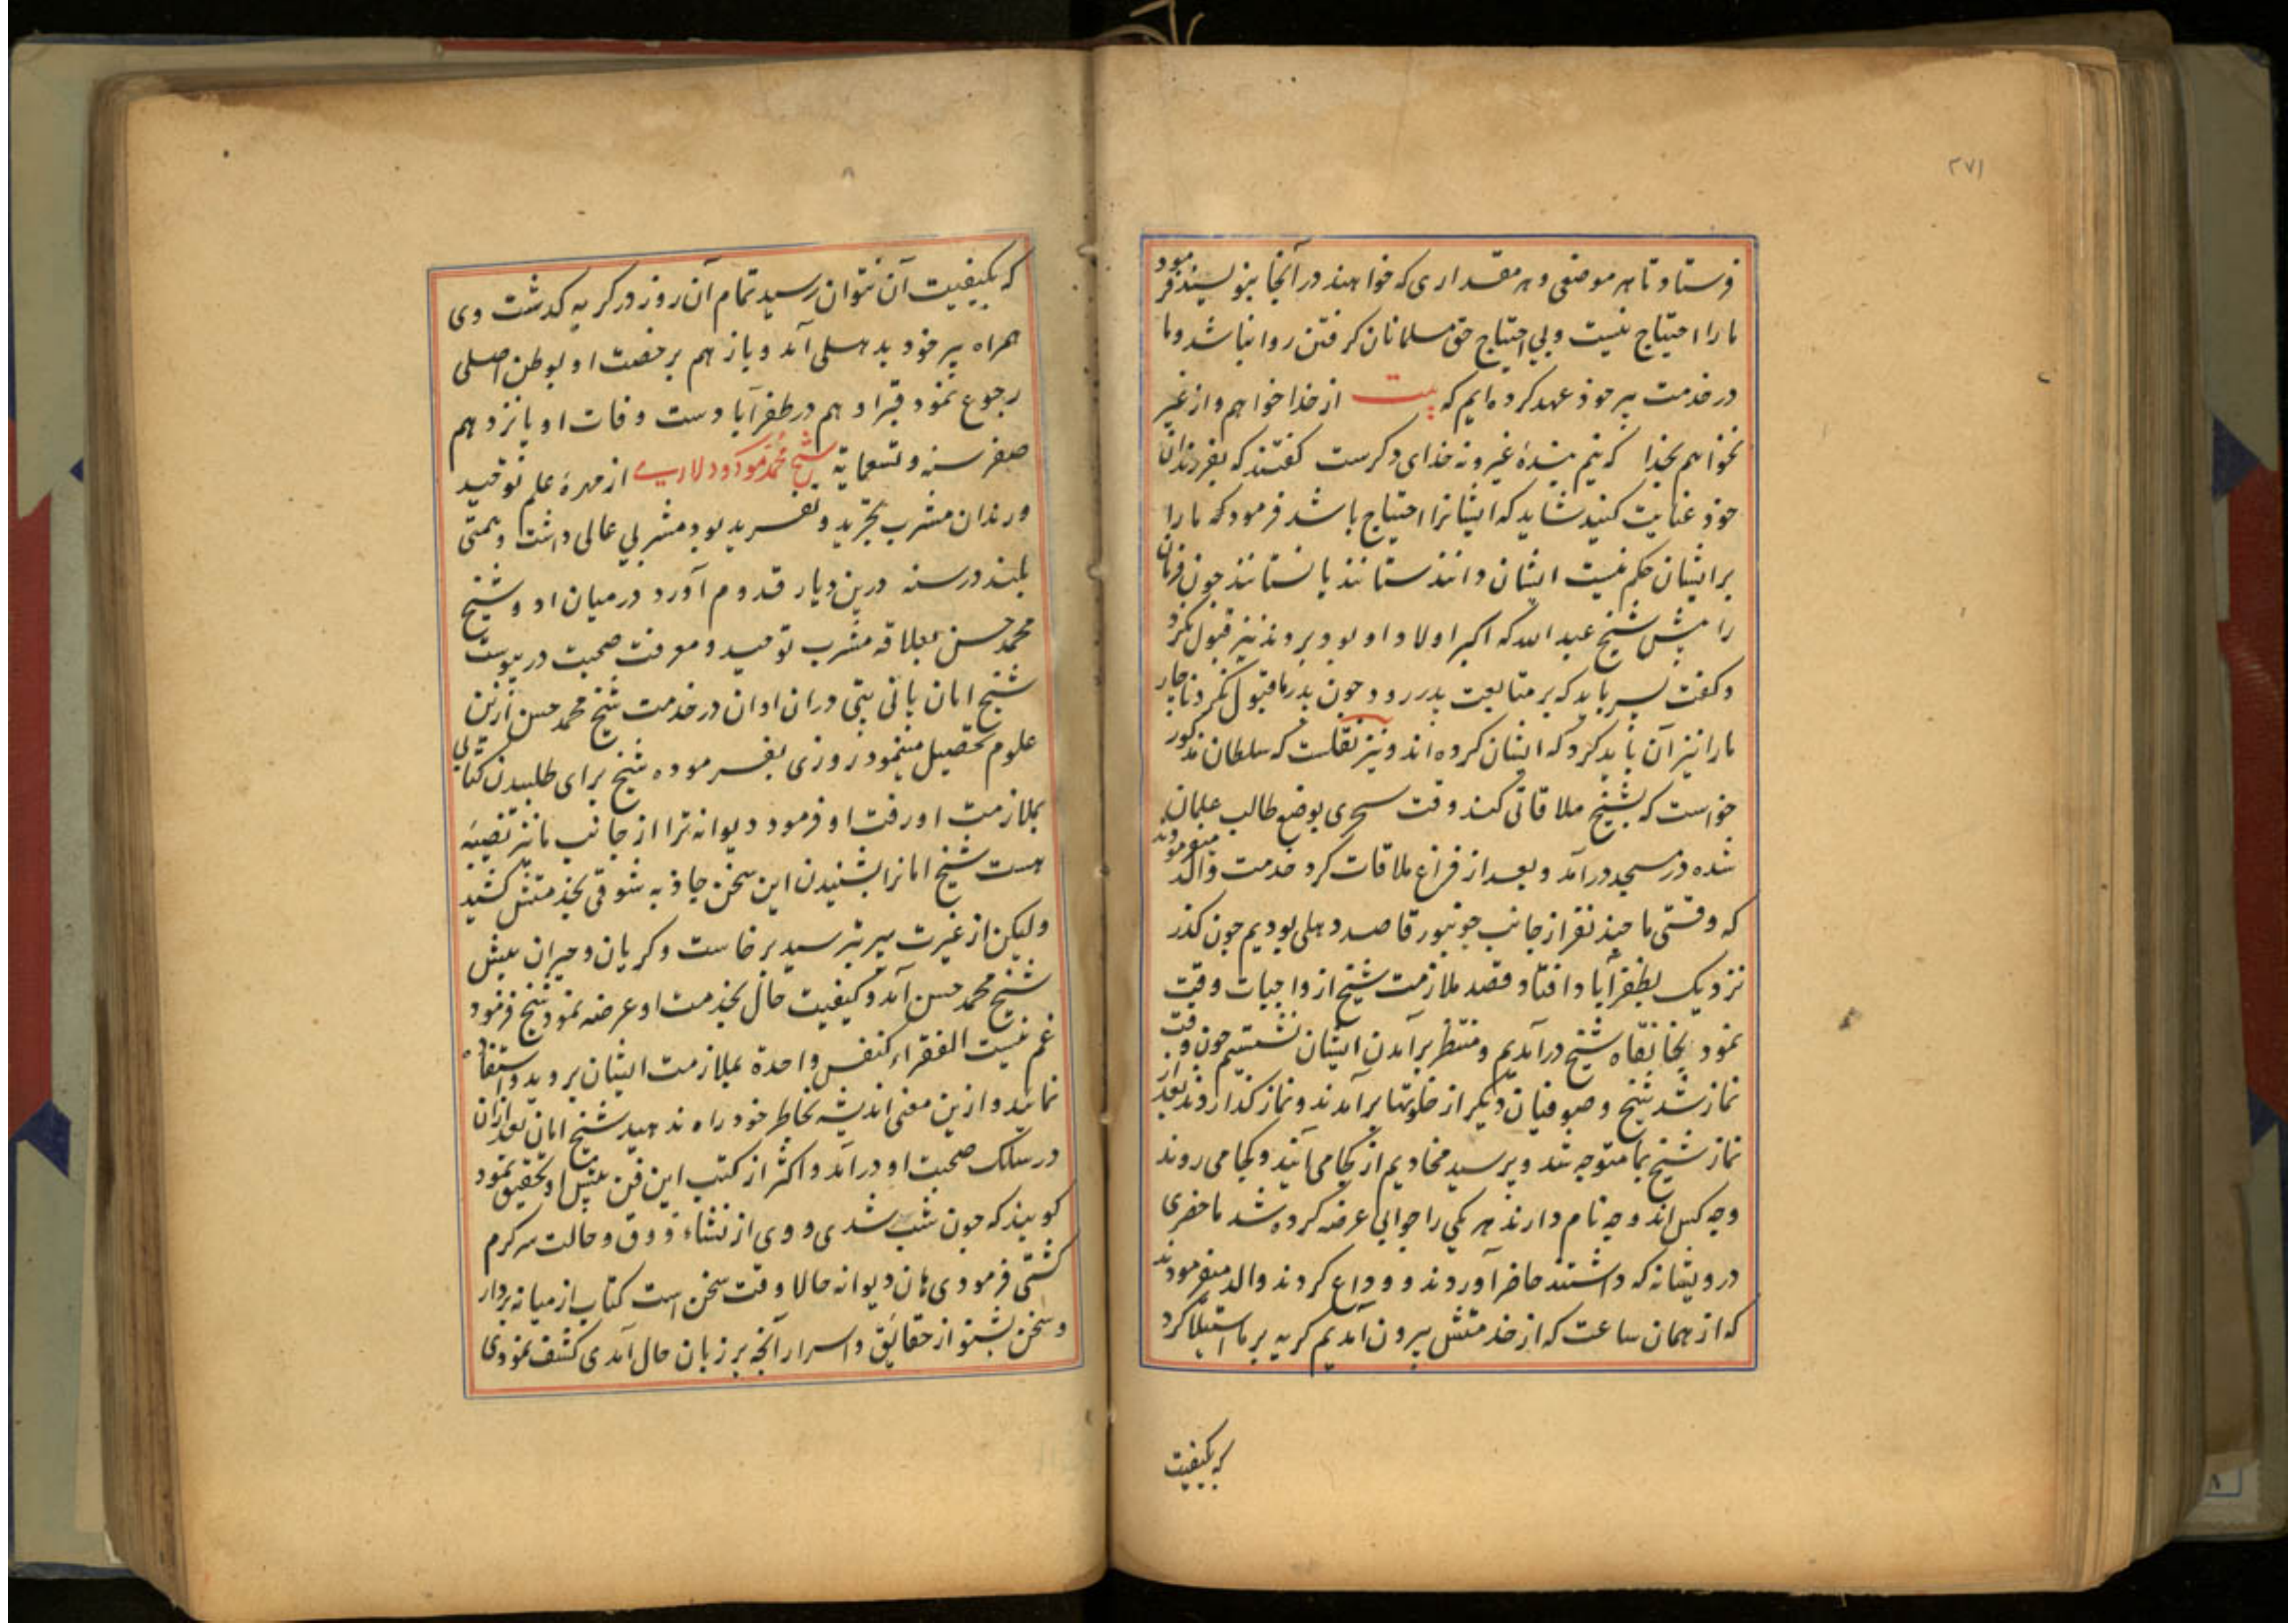 ۲۷۱
فرستاد تا هر موضعی و هر مقداری که خواهند در آنجا بنویسند فرمود
ما را احتیاج نیست و بی احتیاج حق مسلمانان کرفتن روا نباشد و ما
در خدمت پیر خود عهد کرده ایم که بیت از خدا خواهم و از غیر
نخواهم بخدا که نیم بندهٔ غیر و نه خدای دکرست کفتند که بفرزندان
خود عنایت کنید شاید که ایشانرا احتیاج باشد فرمود که ما را
بر ایشان حکم نیست ایشان دانند ستانند یا نستانند چون فرمان
را پیش شیخ عبد الله که اکبر اولاد او بود بردند نیز قبول نکرد
و کفت پسر باید که بر متابعت پدر رود چون پدر ما قبول نکرد ناچار
ما را نیز آن باید کرد که ایشان کرده اند و نیز نقلست که سلطان مذکور
خواست که بشیخ ملاقاتی کند وقت سحری بوضع طالب علمان
شده در مسجد درآمد و بعد از فراغ ملاقات کرد خدمت والد میفرمودند
که وقتی ما چند نفر از جانب جونپور قاصد دهلی بودیم چون کذر
نزدیک بظفرآباد افتاد قصد ملازمت شیخ از واجبات وقت
نمود بخانقاه شیخ درآمدیم و منتظر برآمدن ایشان نشستیم چون وقت
نماز شد شیخ و صوفیان دیکر از خلوتها برآمدند و نماز کذاردند بعد از
نماز شیخ بما متوجه شد و پرسید مخادیم از کجا می آیند و کجا می روند
و چه کس اند و چه نام دارند هر یکی را جوابی عرضه کرده شد ما حضری
درویشانه که داشتند حاضر آوردند و وداع کردند والد میفرمودند
که از همان ساعت که از خدمتش بیرون آمدیم کریه بر ما استیلا کرد
که بکیفیت
که بکیفیت آن نتوان رسید تمام آن روز در کریه کذشت وی
همراه پیر خود بدهلی آمد و باز هم برخصت او بوطن اصلی
رجوع نمود قبر او هم در ظفرآبادست وفات او پانزدهم
صفر سنه و تسعمایة شیخ محمد مودود لاری از مهرهٔ علم توحید
و رندان مشرب تجرید و تفرید بود مشربی عالی داشت و همتی
بلند در سنه درین دیار قدوم آورد در میان او و شیخ
محمد حسن بعلاقه مشرب توحید و معرفت صحبت در پیوست
شیخ امان پانی پتی دران اوان در خدمت شیخ محمد حسن ازین
علوم تحصیل مینمود روزی بفرموده شیخ برای طلبیدن کتابی
بملازمت او رفت او فرمود دیوانه ترا از جانب ما نیز نصیبه
هست شیخ امانرا بشنیدن این سخن جاذبه شوقی بخدمتش کشید
ولیکن از غیرت پیر بترسید برخاست و کریان و حیران پیش
شیخ محمد حسن آمد و کیفیت حال بخدمت او عرضه نمود شیخ فرمود
غم نیست الفقراء کنفس واحدة بملازمت ایشان بروید و استفاده
نمایید و ازین معنی اندیشه بخاطر خود راه ندهید شیخ امان بعد ازان
در سلک صحبت او درآمد و اکثر از کتب این فن پیش او تحقیق نمود
کویند که چون شب شدی و وی از نشاء ذوق و حالت سرکرم
کشتی فرمودی هان دیوانه حالا وقت سخن است کتاب از میانه بردار
و سخن بشنو از حقائق و اسرار آنچه بر زبان حال آمدی کشف نمودی